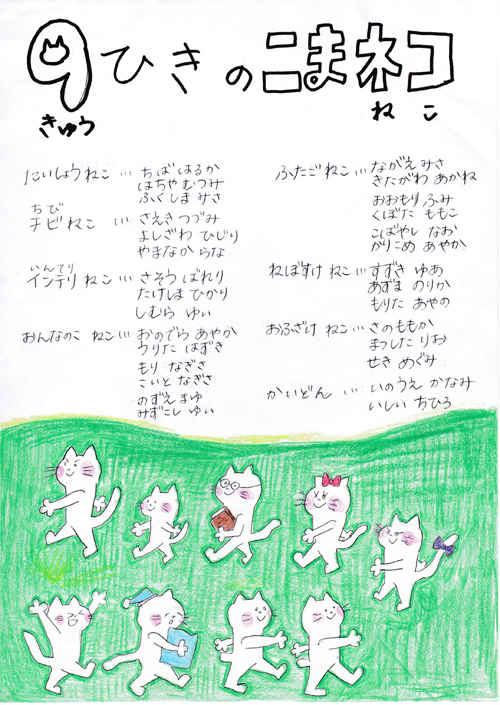 9ひきのこまネコ
きゅう
ねこ
たいしょうねこ … ちば はるか
はちや むつみ
ふくしま みさ
ちび
チビねこ … さえき つづみ
よしざわ ひじり
やまなか らな
いんてり
インテリ ねこ … さそう ばれり
たけしま ひかり
しむら ゆい
おんなのこ ねこ … おのでら あやか
うりた はずき
もり なぎさ
こいと なぎさ
のずえ まゆ
みずこし ゆい
ふたごねこ … ながえ みさ
きたがわ あかね
おおもり ふみ
くぼた ももこ
こばやし なお
かりこめ あやか
ねぼすけ ねこ … すずき ゆあ
あずま のりか
もりた あやの
おふざけ ねこ … さの ももか
まつした りお
せき めぐみ
かいどん … いのうえ かなみ
いしい ちひろ